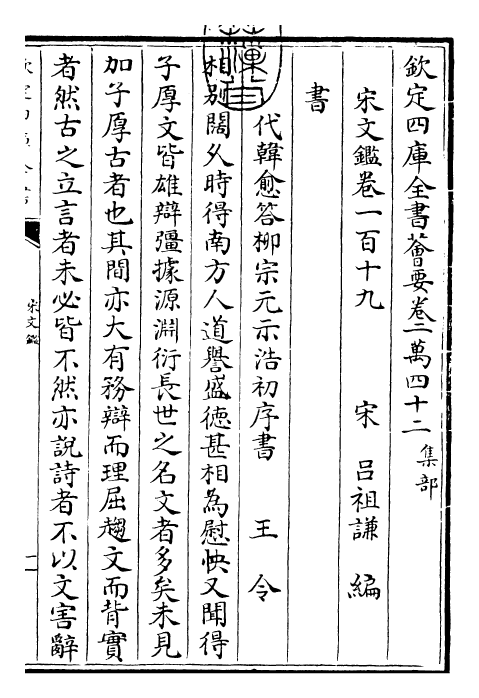 欽定四庫全書薈要卷二萬四十二 集部
宋文鑑卷一百十九
宋 呂祖謙 編
書
代韓愈答柳宗元示浩初序書 王令
相別闊久時得南方人道譽盛徳甚相為慰怏又聞得
子厚文皆雄辯彊據源淵衍長世之名文者多矣未見
加子厚古者也其間亦大有務辯而理屈趨文而背實
者然古之立言者未必皆不然亦説詩者不以文害辭
宋文鑑
一